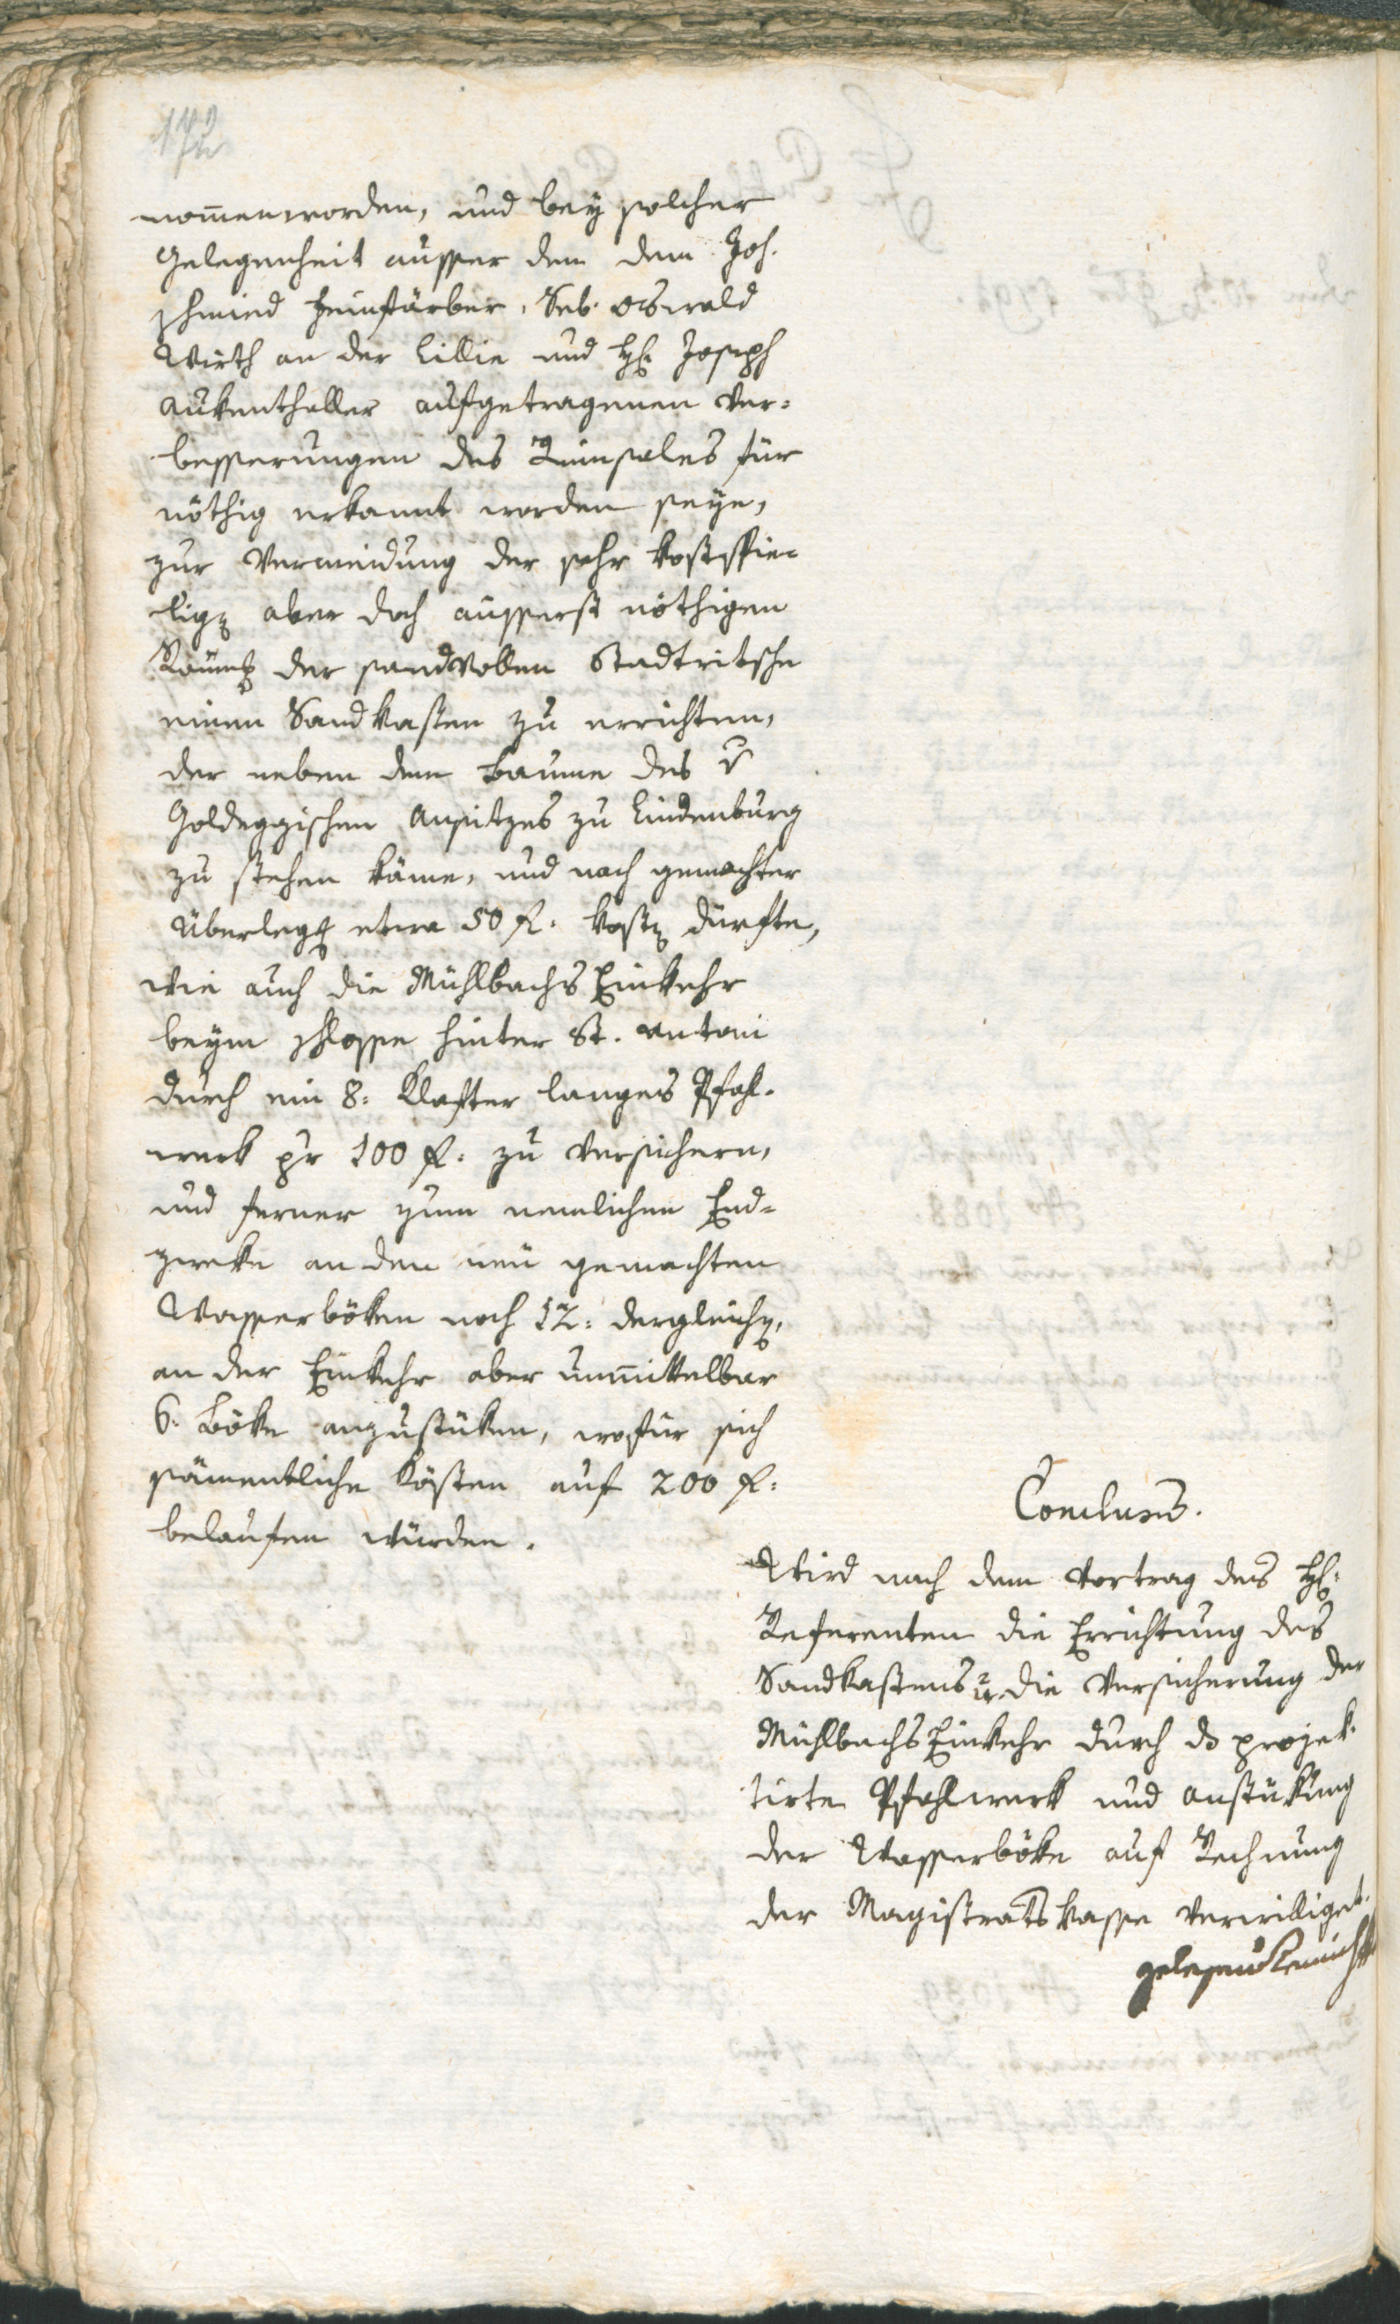 172
nom̄en worden, und bey solcher
Gelegenheit ausser dem dem Joh.
Schmied Heimfärber, Seb. Oswald
Wirth an der Lillie und H: Joseph
Aukenthaller aufgetragenen Ver¬
besserungen des Rinnsales für
nöthig erkannt worden seye,
zur Vermeidung der sehr kostspie¬
lig. aber doch äusserst nöthigen
Raumg der sandvollen Stadtritsche
einen Sandkasten zu errichten,
der neben dem Baume des v
Goldeggischen Ansitzes zu Lindenburg
zu stehen käme, und nach gemachter
Überlegg etwa 50 f. kostn dürfte,
wie auch die Mühlbachs Einkehr
beym Schlosse hinter St. Antoni
durch ein 8: Klafter langes Pfahl¬
werk pr 100 f. zu versichern,
und ferner zum nemlichen End¬
zweke an den neu gemachten
Wasserböken noch 12: dergleichn,
an der Einkehr aber unmittelbar
6. Böke anzustüken, wofür sich
sämentliche Kösten auf 200 f.
belaufen würden.
Conclusum.
Wird nach dem Vortrag des H:
Referenten die Errichtung des
Sandkastens u. die Versicherung der
Mühlbachs Einkehr durch ds projek¬
tirte Pfahlwerk und Anstükung
der Wasserböke auf Rechnung
der Magistratskasse verwilliget.
gelesen